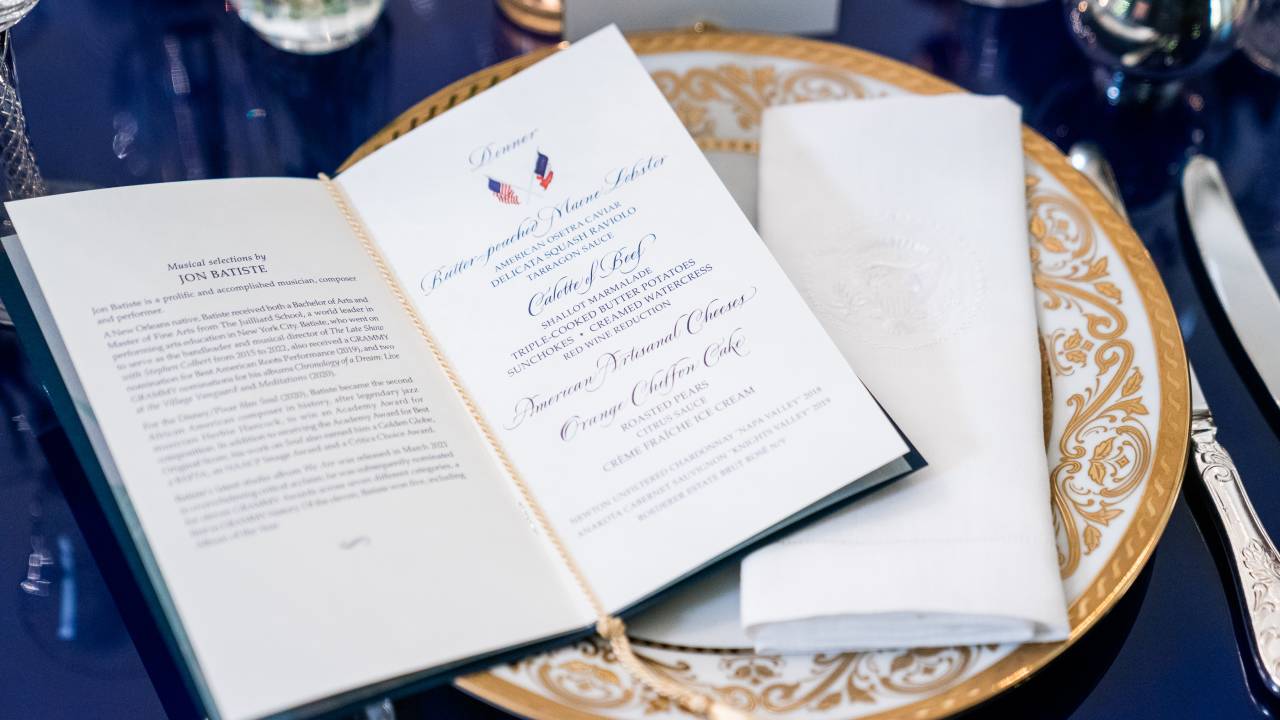 Musical selections by
JON BATISTE
Jon Batiste is a prolific and accomplished musician, composer
and performer.
A New Orleans native, Batiste received both a Bachelor of Arts and
Master of Fine Arts from The Juilliard School, a world leader in
performing arts education in New York City. Batiste, who went on
to serve as the bandleader and musical director of The Late Show
with Stephen Colbert from 2015 to 2022, also received a GRAMMY
nomination for Best American Roots Performance (2019), and two
GRAMMY nominations for his albums Chronology of a Dream: Live
at the Village Vanguard and Meditations (2020).
For the Disney/Pixar film Soul (2020), Batiste became the second
African American composer in history, after legendary jazz
musician Herbie Hancock, to win an Academy Award for
composition. In addition to receiving the Academy Award for Best
Original Score, his work on Soul also earned him a Golden Globe,
a BAFTA, an NAACP Image Award and a Critics Choice Award.
Batiste's latest studio album We Are was released in March 2021
to overwhelming critical acclaim; he was subsequently nominated
for eleven GRAMMY Awards across seven different categories, a
first in GRAMMY history. Of the eleven, Batiste won five, including
Album of the Year.
Dinner
Butter-poached Maine Lobster
AMERICAN OSETRA CAVIAR
DELICATA SQUASH RAVIOLO
TARRAGON SAUCE
Calotte of Beef
SHALLOT MARMALADE
TRIPLE-COOKED BUTTER POTATOES
SUNCHOKES • CREAMED WATERCRESS
RED WINE REDUCTION
American Artesanal Cheeses
Orange Chiffon Cake
ROASTED PEARS
CITRUS SAUCE
CRÈME FRAÎCHE ICE CREAM
NEWTON UNFILTERED CHARDONNAY "NAPA VALLEY" 2018
ANAKOTA CABERNET SAUVIGNON "KNIGHTS VALLEY" 2019
ROEDERER ESTATE BRUT ROSÉ N/V